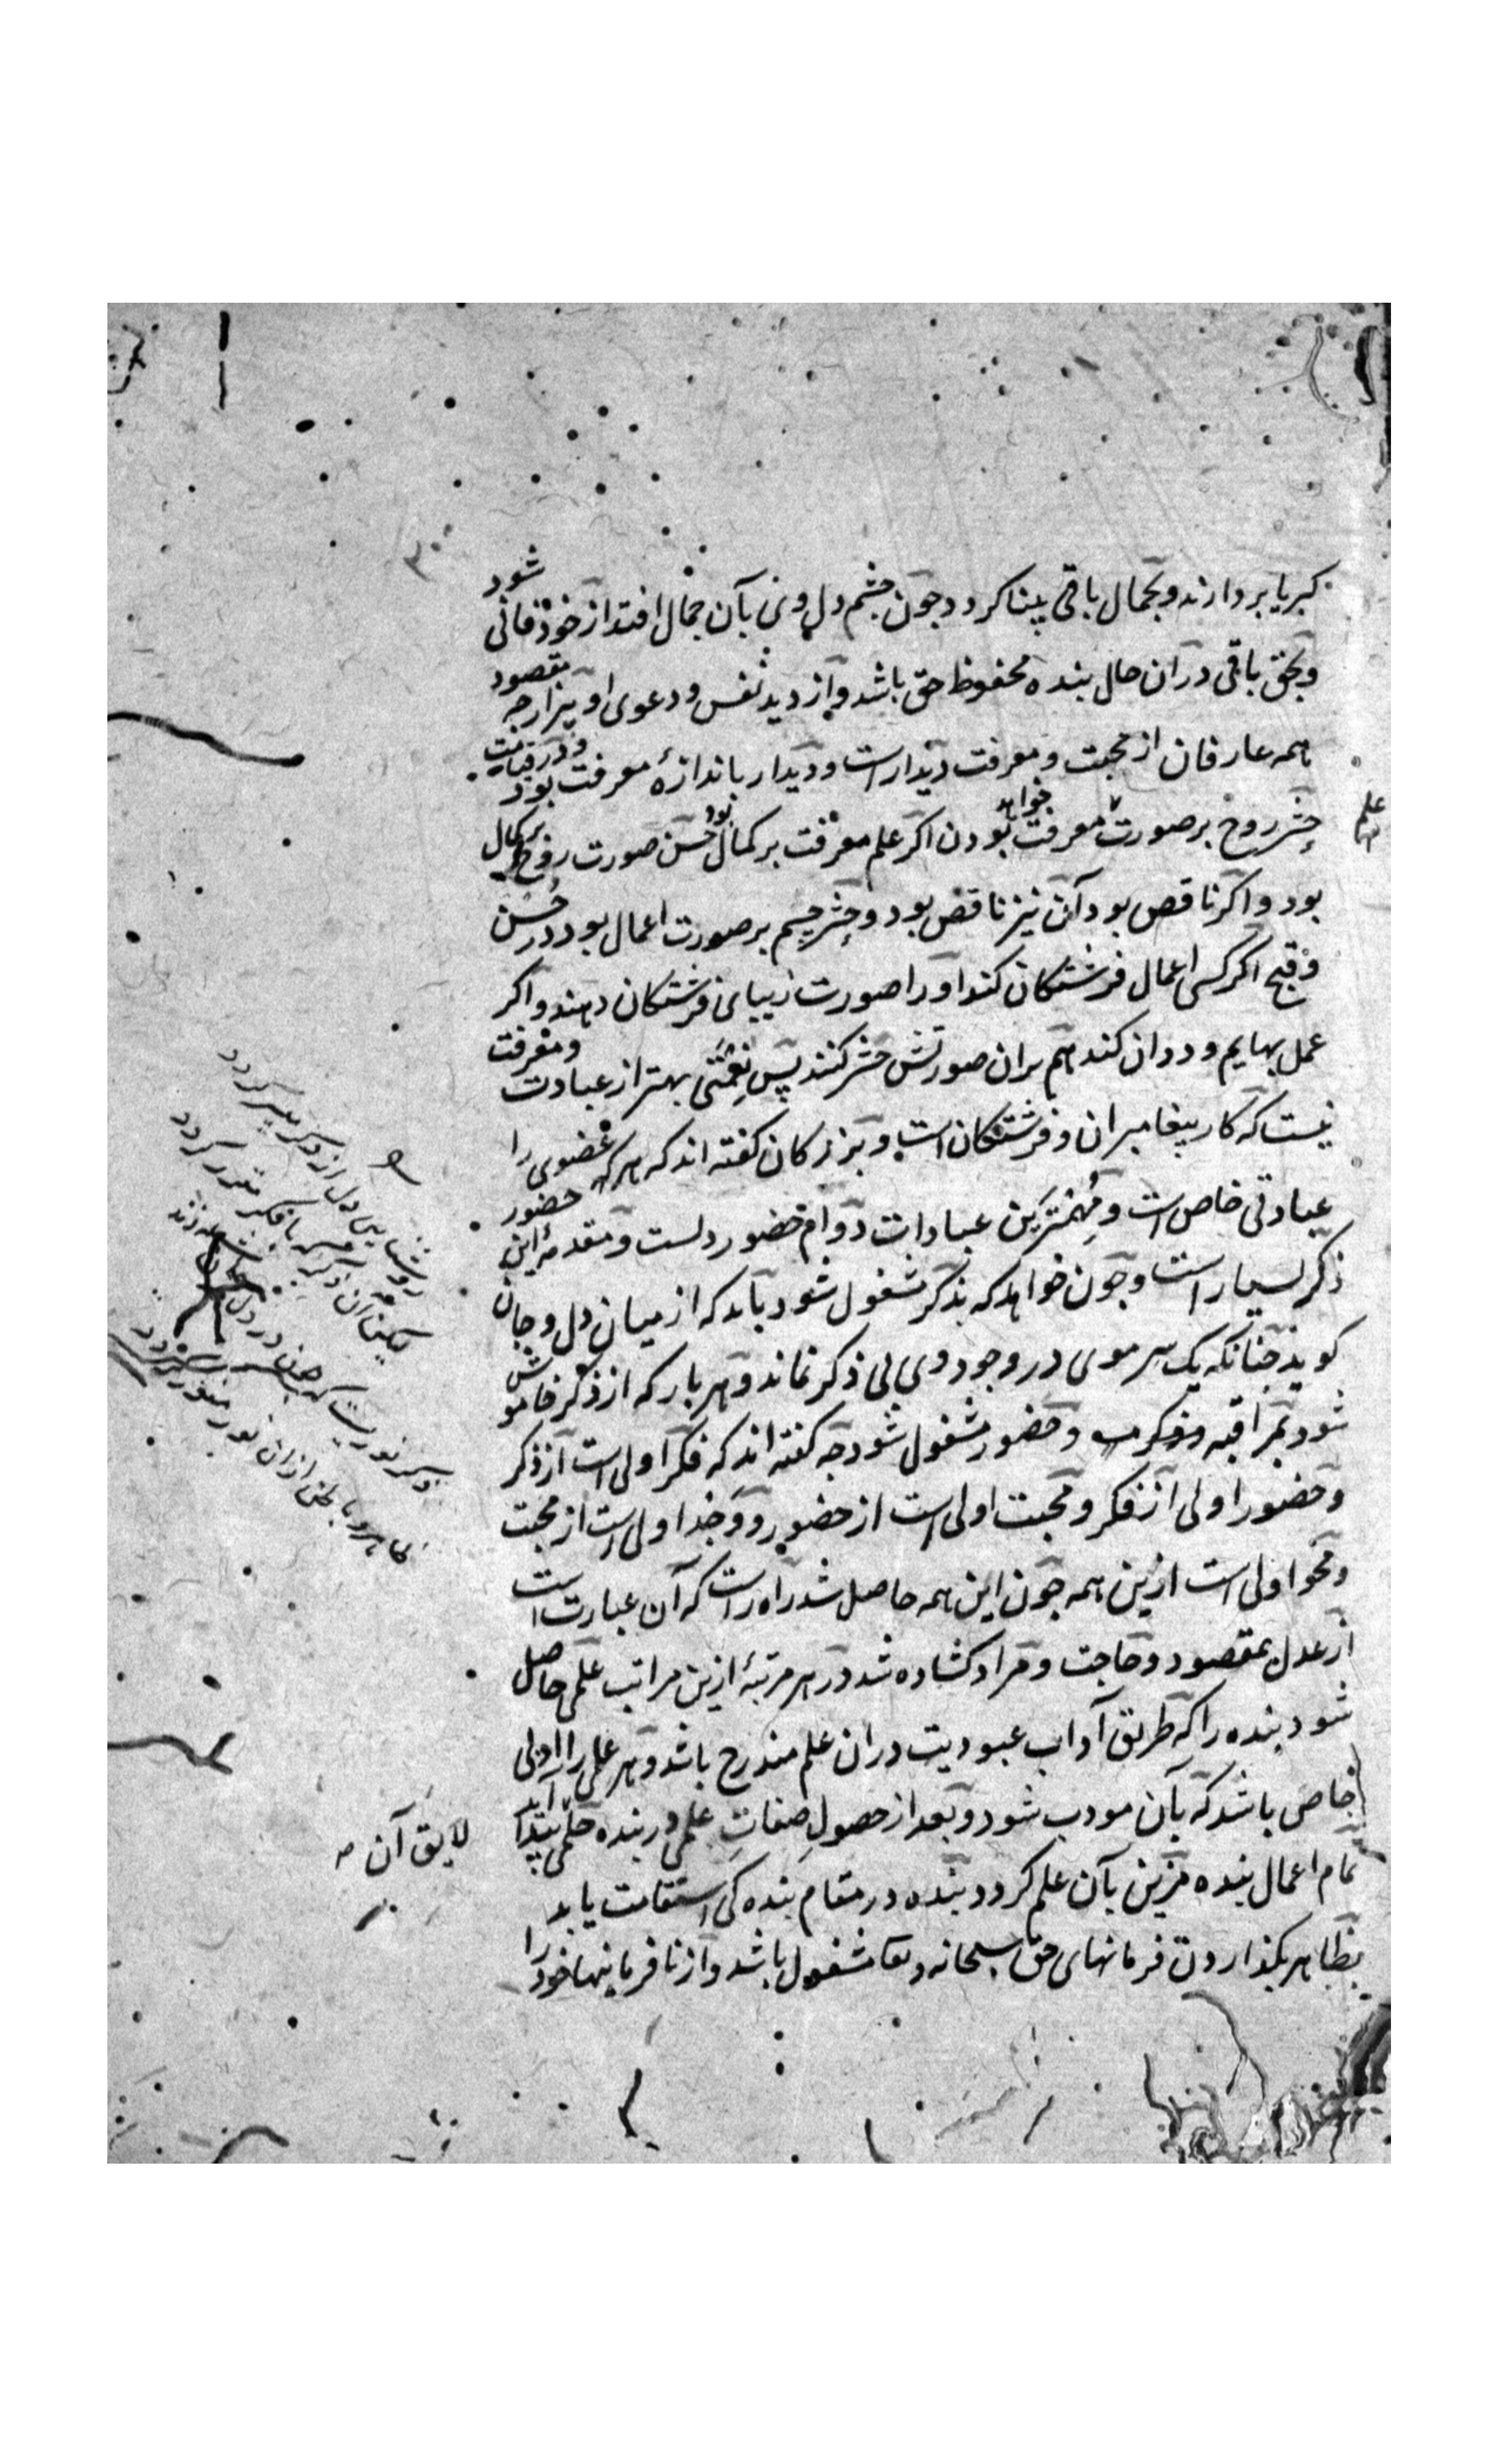 کبریا بردارند و بجمال باقی بینا کردد چون چشم دل وی بآن جمال افتد از خود فانی شود
و بحق باقی دران حال بنده محفوظ حق باشد و از دید نفس و دعوی او بیزار چه مقصود
همه عارفان از محبت و معرفت دیدار است و دیدار باندازۀ معرفت بود و در قیامت
حشر روح بر صورت معرفت خواهد بودن اکر علم معرفت بر کمال بود حسن صورت روح بر کمال
بود و اکر ناقص بود آن نیز ناقص بود و حشر جسم بر صورت اعمال بود در حسن
و قبح اکر کسی اعمال فرشتکان کند او را صورت زیبای فرشتکان دهند و اکر
عمل بهایم و ددان کند هم بران صورتش حشر کنند پس نعمتی بهتر از عبادت و معرفت
نیست که کار پیغامبران و فرشتکان است و بزرکان کفته اند که هر عضوی را
عبادتی خاص است و مهمترین عبادات دوام حضور دلست و مقدمۀ این حضور
ذکر بسیار است و چون خواهد که بذکر مشغول شود باید که از میان دل و جان
کوید چنانکه یک سر موی در وجود وی بی ذکر نماند و هر بار که از ذکر خاموش
شود بمراقبه و فکر و حضور مشغول شود چه کفته اند که فکر اولی است از ذکر
و حضور اولی از فکر و محبت اولی است از حضور و وجد اولی است از محبت
و محو اولی است ازین همه چون این همه حاصل شد راه راست که آن عبارت است
از عدل بمقصود و حاجت و مراد کشاده شد در هر مرتبۀ ازین مراتب علمی حاصل
شود بنده را که طریق آداب عبودیت دران علم مندرج باشد و هر علمی را ادبی
خاص باشد که بآن مودب شود و بعد از حصول صفات علمی در بنده حلمی پیدا آید
تمام اعمال بنده مزین بآن علم کردد بنده در مقام بنده کی استقامت یابد
بظاهر بکذاردن فرمانهای حق سبحانه و تعا مشغول باشد و از نافرمانیها خود را
علم
روشنایی دل از ذکر میسر کردد
لیکن آن ذکر با فکر مقرر کردد
ذکر نوریست که چون در دل
ظاهر و باطن ازان نور منور کردد
لایق آن